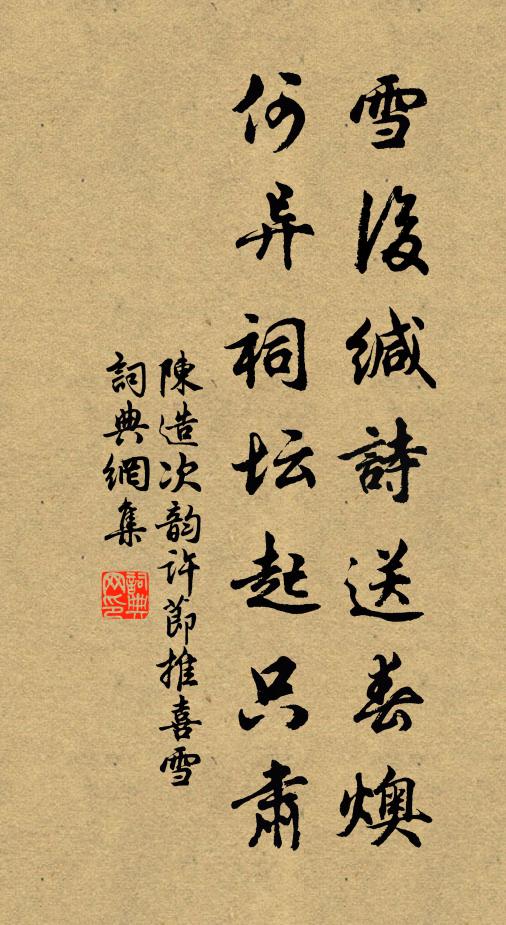 雪後緘詩送春燠
何异祠坛起只肅
陳造次韵许節推喜雪
詞典網集
詞典網印